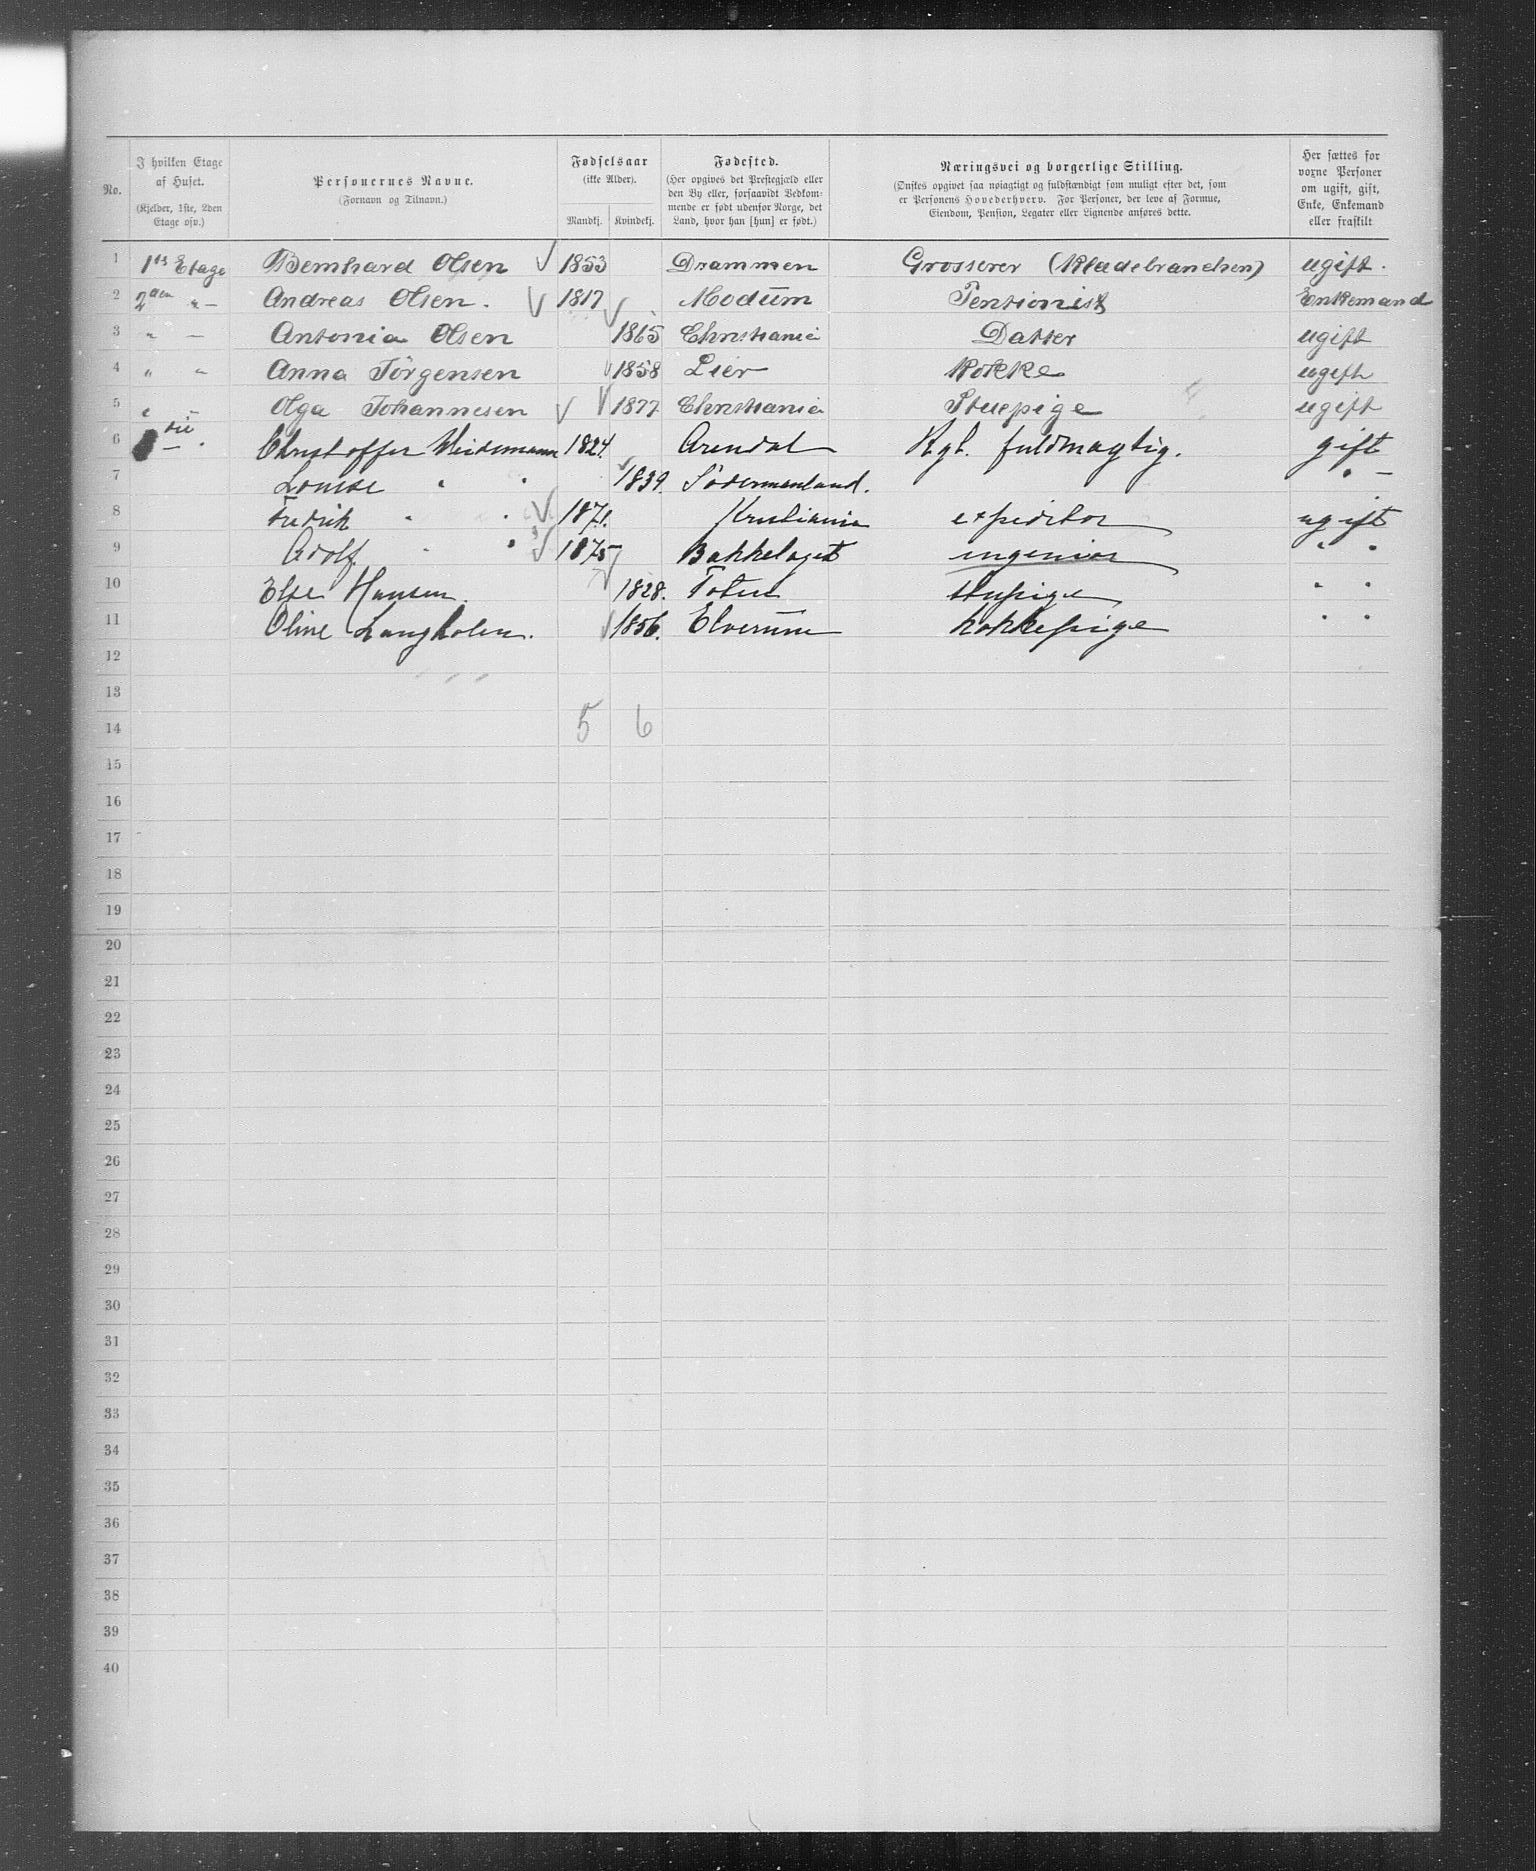 No.
I hvilken Etage af Huset. (Kjelder, 1ste, 2den Etage osv.)
Personernes Navne. (Fornavn og Tilnavn.)
Fødselsaar (ikke Alder). Mandkj. Kvindekj.
Fødested. (Her opgives det Prestegjæld eller den By eller, forsaavidt Vedkommende er født udenfor Norge, det Land, hvor han [hun] er født.)
Næringsvei og borgerlige Stilling. (Ønskes opgivet saa nøiagtigt og fuldstændigt som muligt efter det, som er Personens Hovederhverv. For Personer, der leve af Formue, Eiendom, Pension, Legater eller Lignende anføres dette.)
Her sættes for voxne Personer om ugift, gift, Enke, Enkemand eller fraskilt
1 1ste Etage Bernhard Olsen 1853 Drammen Grosserer (Klædebranchen) ugift.
2 2den " — Andreas Olsen. 1817 Modum Pentionist Enkemand
3 " — Antonia Olsen 1865 Christiania Datter ugift
4 " " Anna Jörgensen 1858 Lier Kokke ugift
5 " — Olga Johannesen 1877 Christiania Stuepige ugift
6 — " Christoffer Weidemann 1824. Arendal Kgl. fuldmagtig. gift
7 Louise " " 1839. Södermanland. " —
8 Fredrik " " 1871. Kristiania expeditor ugift
9 Adolf " " 1875 Bakkelaget ingeniør " "
10 Else Hansen. 1828. Toten stupige " "
11 Oline Langholen. 1856. Elverum kokkepige " "
12
13
14 5 6
15
16
17
18
19
20
21
22
23
24
25
26
27
28
29
30
31
32
33
34
35
36
37
38
39
40